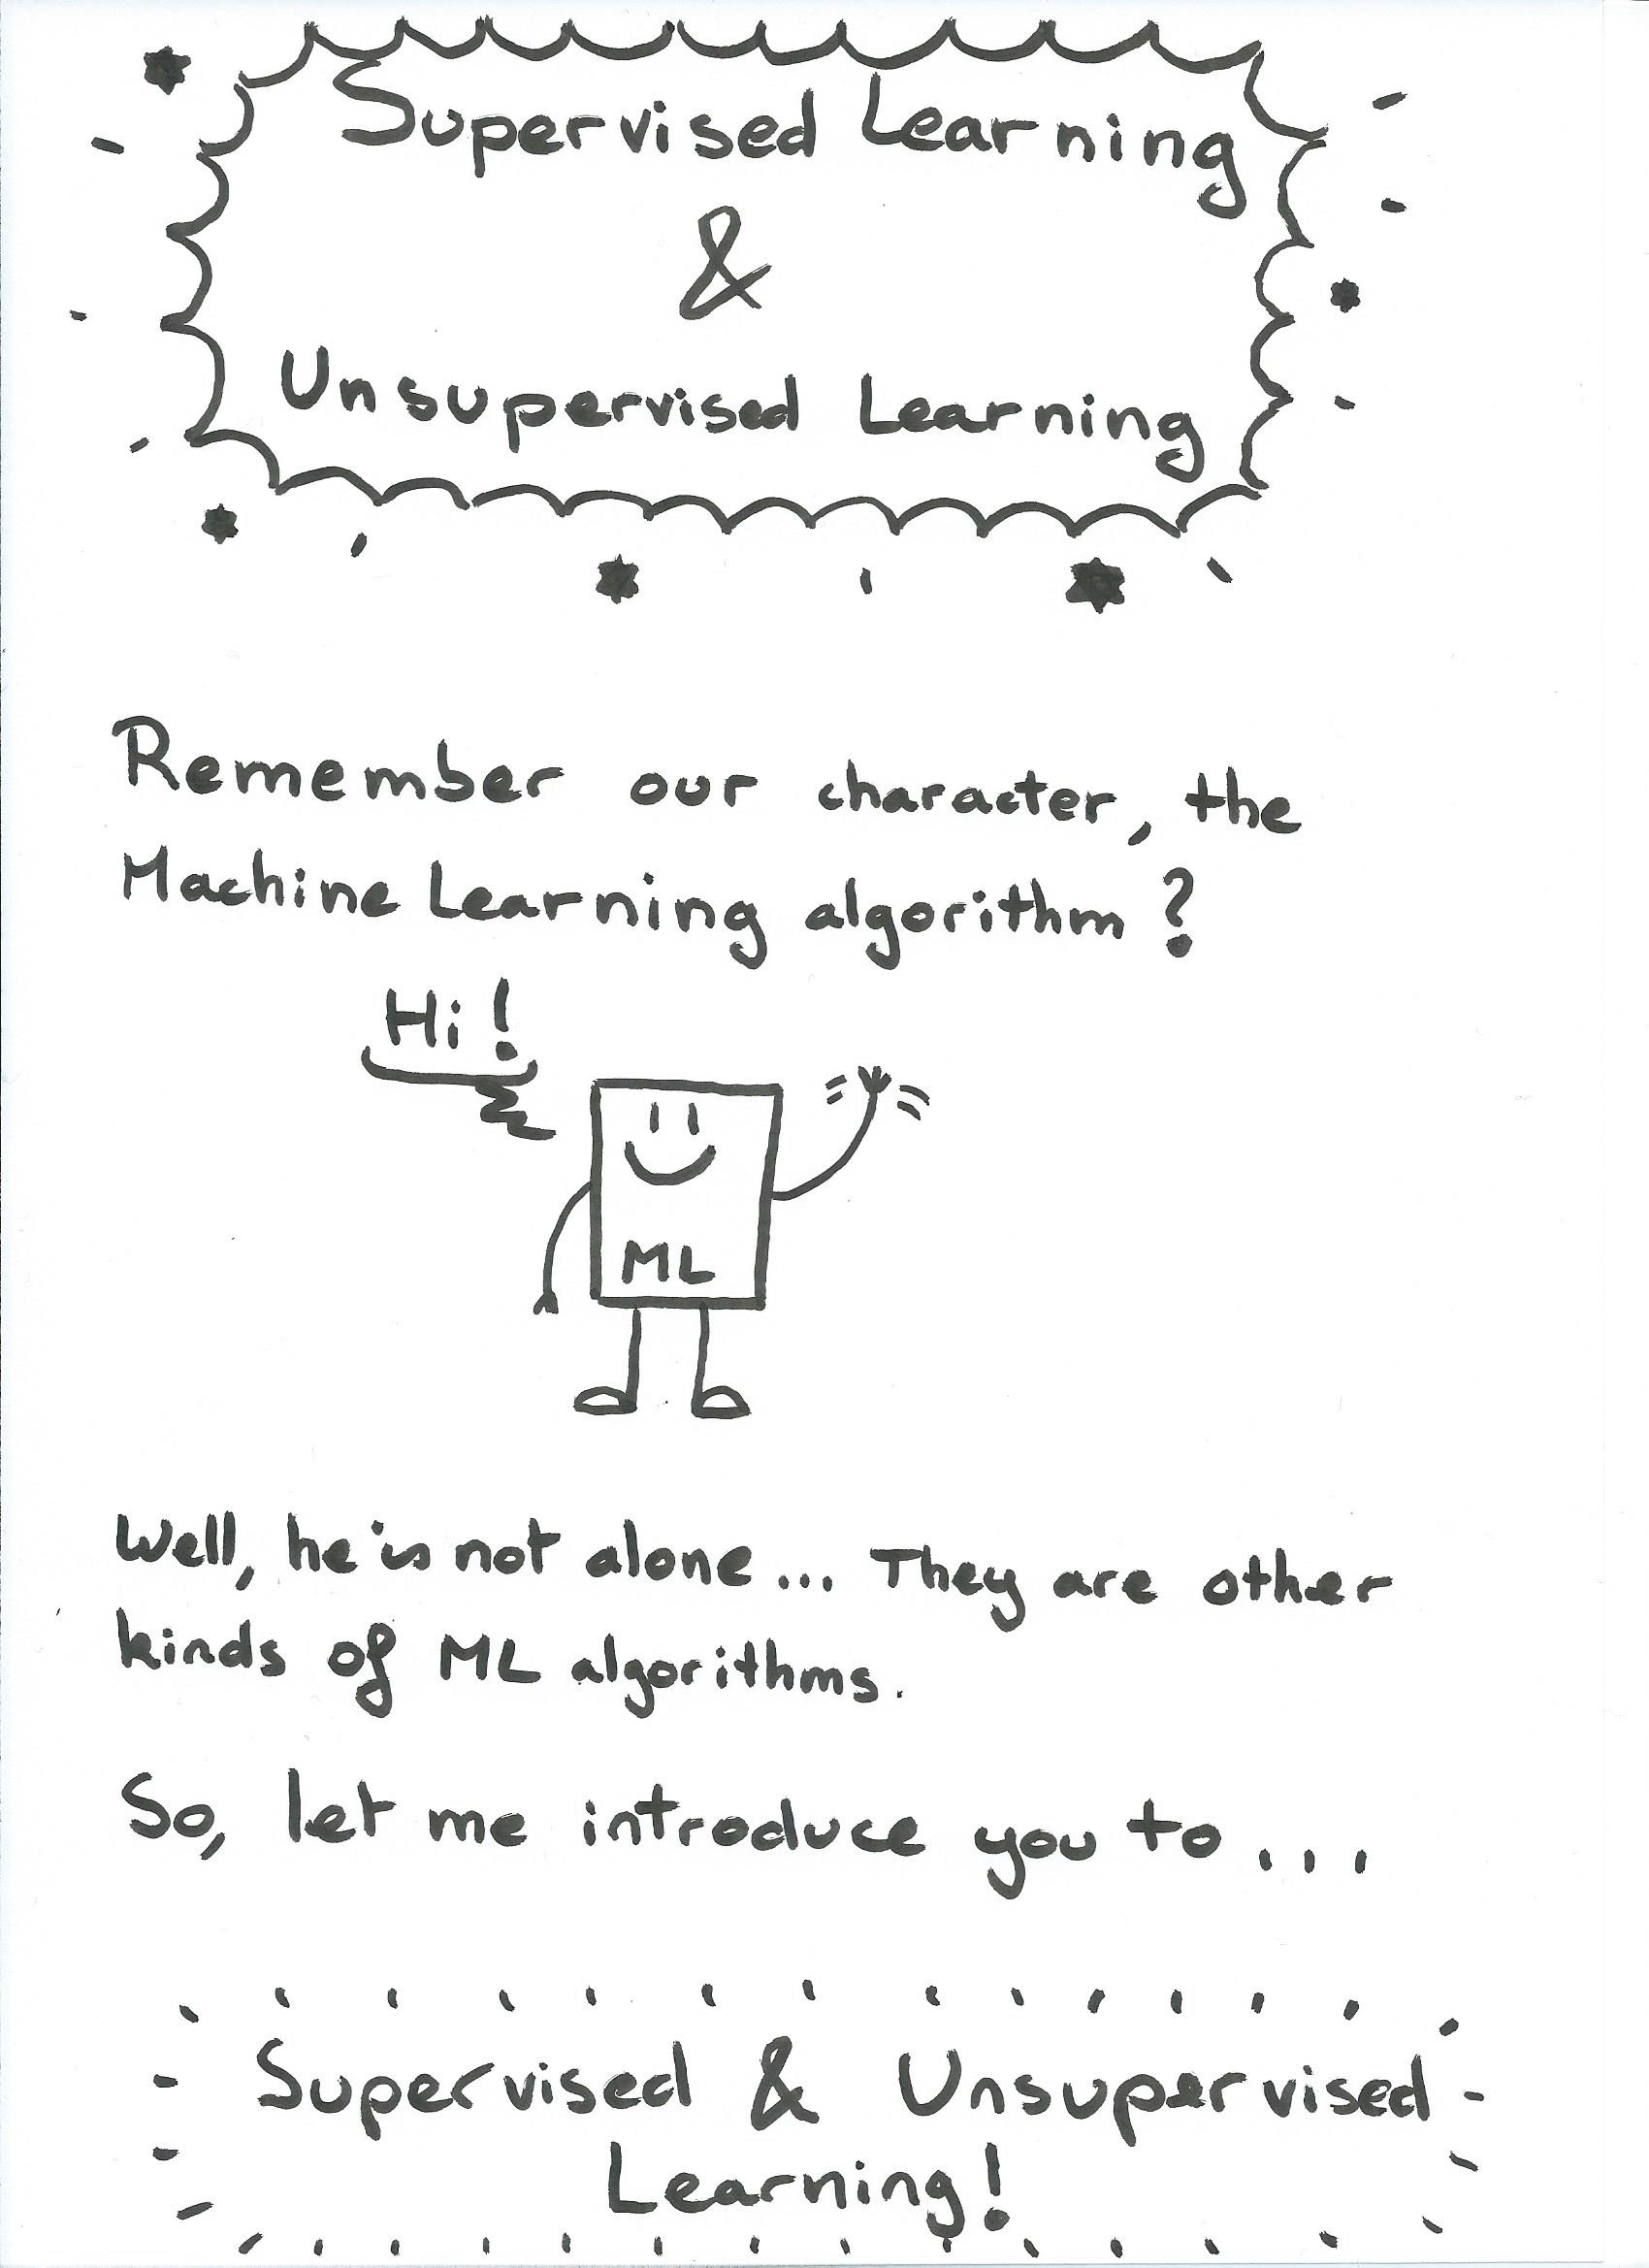 Supervised Learning
&
Unsupervised Learning
Remember our character, the
Machine Learning algorithm?
Hi!
ML
Well, he is not alone... They are other
kinds of ML algorithms.
So, let me introduce you to...
Supervised & Unsupervised
Learning!